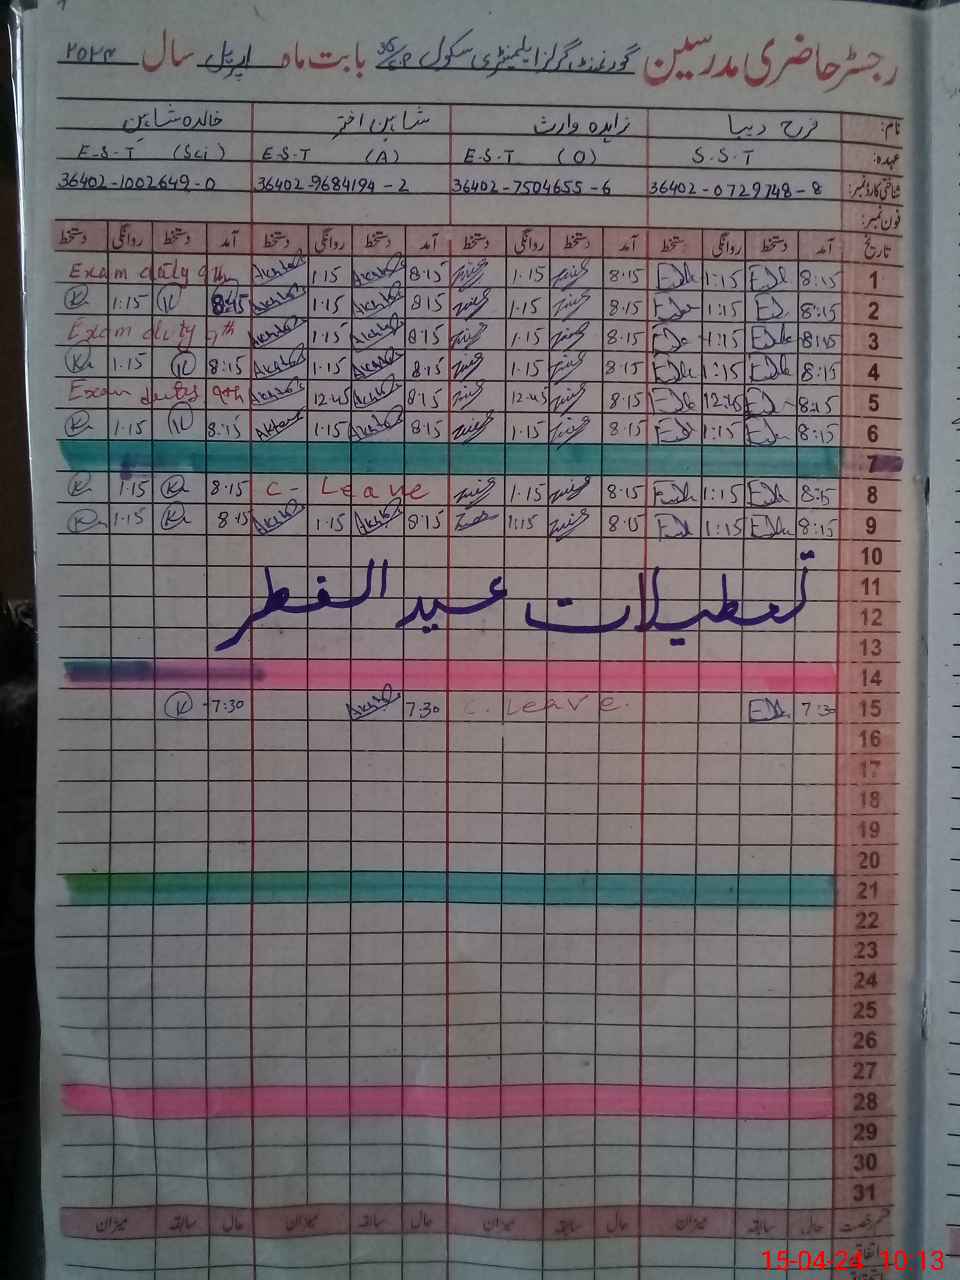 رجسٹر حاضری مدرسین گورنمنٹ گرلز ایلیمنٹری سکول 36/SP بابت ماہ اپریل سال ۲۰۲۴
نام: فرح دیبا زاہدہ وارث شاہین اختر خالدہ شاہین
عہدہ: S.S.T E.S.T (O) E.S.T (A) E.S.T (Sci)
شناختی کارڈ نمبر: 36402-0729748-8 36402-7504655-6 36402-9684194-2 36402-1002649-0
فون نمبر:
تاریخ آمد دستخط روانگی دستخط آمد دستخط روانگی دستخط آمد دستخط روانگی دستخط آمد دستخط روانگی دستخط
1 8:15 1:15 8:15 1:15 8:15 1:15 Exam duty 9th
2 8:15 1:15 8:15 1:15 8:15 1:15 8:15 1:15
3 8:15 1:15 8:15 1:15 8:15 1:15 Exam duty 9th
4 8:15 1:15 8:15 1:15 8:15 1:15 8:15 1:15
5 8:15 12:45 8:15 12:45 8:15 12:45 Exam duty 9th
6 8:15 1:15 8:15 1:15 8:15 1:15 8:15 1:15
7
8 8:15 1:15 8:15 1:15 C- Leave 8:15 1:15
9 8:15 1:15 8:15 1:15 8:15 1:15 8:15 1:15
10
11
تعطیلات عید الفطر
12
13
14
15 7:30 C. Leave. 7:30 7:30
16
17
18
19
20
21
22
23
24
25
26
27
28
29
30
31
قسم رخصت حال سابقہ میزان حال سابقہ میزان حال سابقہ میزان حال سابقہ میزان
15-04-24 10:13